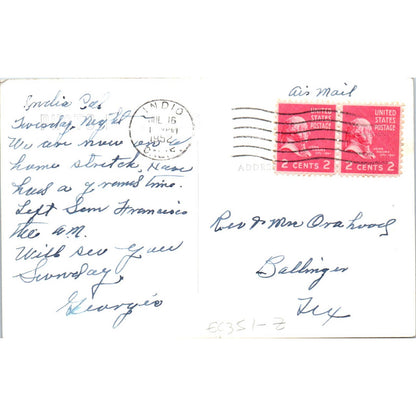 Indio Cal
Tuesday Night
We are now on
home stretch. Have
had a grand time.
Left San Francisco
this A.M.
Will see you
Sunday.
Georgie
INDIO
JUL 16
1952
CALIF.
Air Mail
UNITED
STATES
POSTAGE
2 CENTS 2
UNITED
STATES
POSTAGE
2 CENTS 2
Rev & Mrs Ora Hood
Ballinger
Tex
EC351-Z